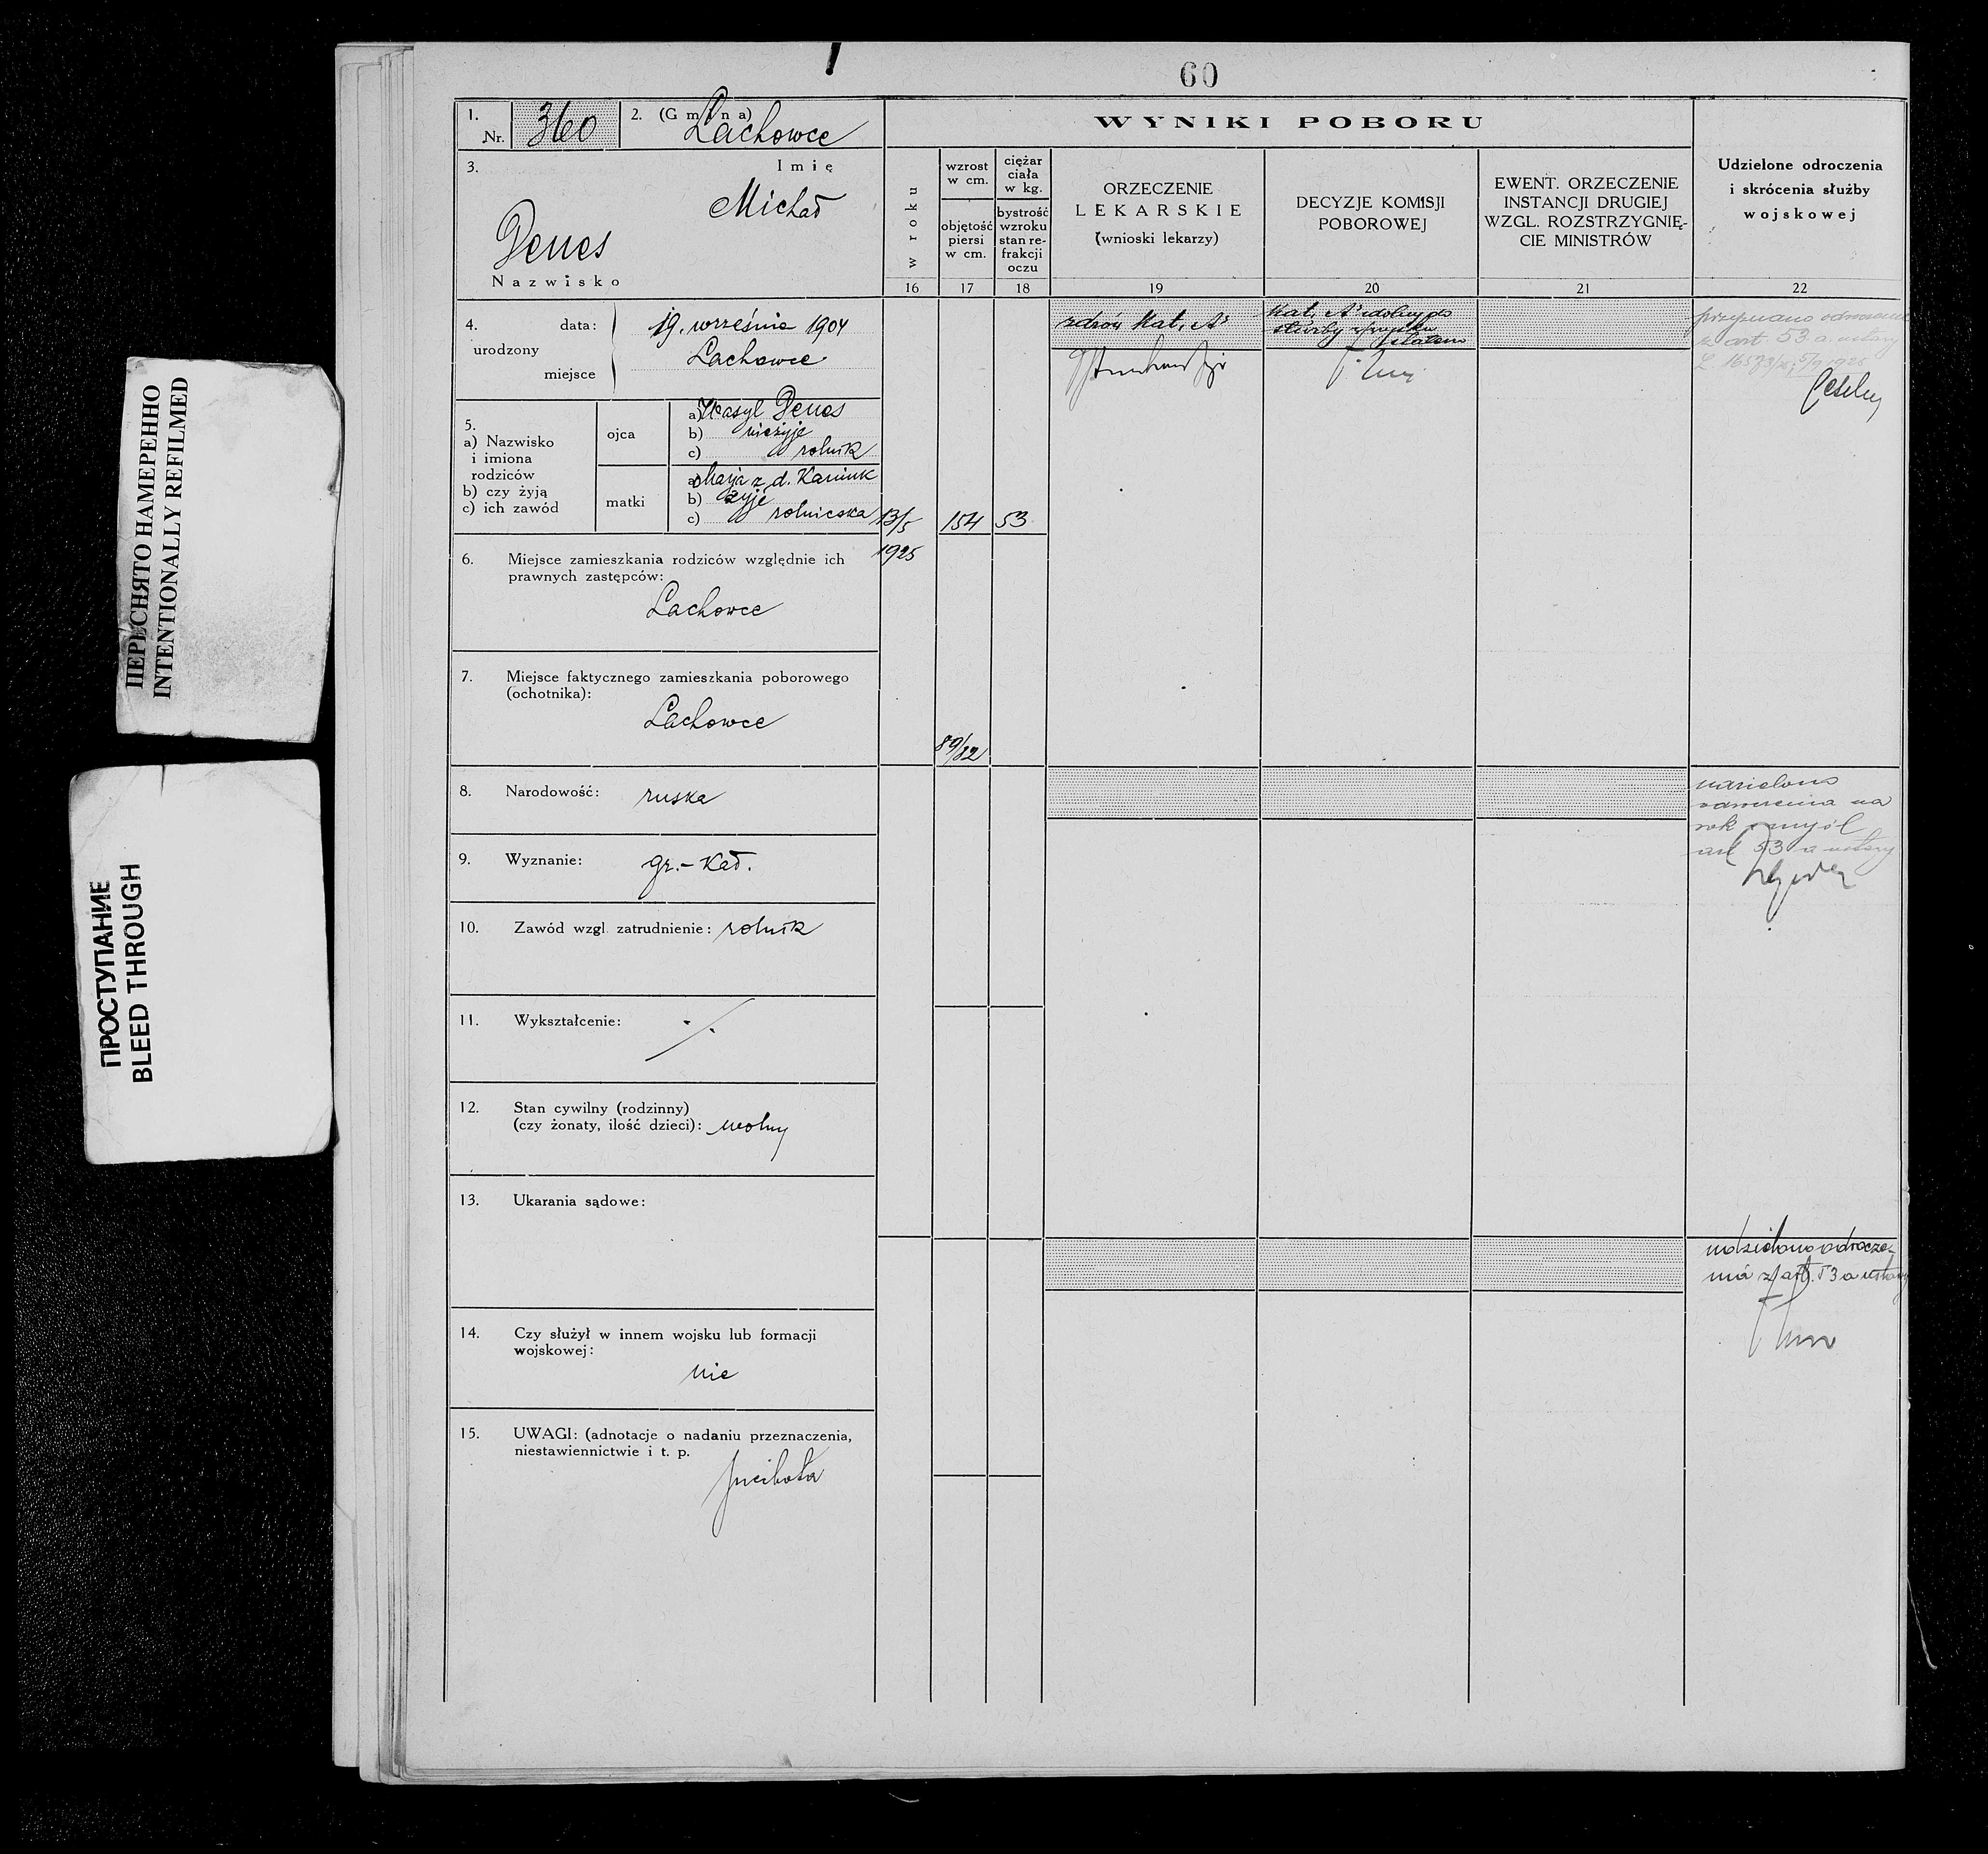 60
1.
Nr. 360
2. (Gmina) Lachowce
3.
Imię
Michał
Denes
Nazwisko
4. urodzony
data: 19. września 1904
miejsce Lachowce
5.
a) Nazwisko
i imiona
rodziców
b) czy żyją
c) ich zawód
ojca
a) Wasyl Denes
b) nieżyje
c) rolnik
matki
a) Marja z d.
b) żyje
c) rolniczka
6. Miejsce zamieszkania rodziców względnie ich
prawnych zastępców:
Lachowce
7. Miejsce faktycznego zamieszkania poborowego
(ochotnika):
Lachowce
8. Narodowość: ruska
9. Wyznanie: gr.-kat.
10. Zawód wzgl. zatrudnienie: rolnik
11. Wykształcenie: ./.
12. Stan cywilny (rodzinny)
(czy żonaty, ilość dzieci): wolny
13. Ukarania sądowe:
14. Czy służył w innem wojsku lub formacji
wojskowej:
nie
15. UWAGI: (adnotacje o nadaniu przeznaczenia,
niestawiennictwie i t. p.
piechota
WYNIKI POBORU
w roku
16
wzrost
w cm.
objętość
piersi
w cm.
17
ciężar
ciała
w kg.
bystrość
wzroku
stan re-
frakcji
oczu
18
ORZECZENIE
LEKARSKIE
(wnioski lekarzy)
19
DECYZJE KOMISJI
POBOROWEJ
20
EWENT. ORZECZENIE
INSTANCJI DRUGIEJ
WZGL. ROZSTRZYGNIĘ-
CIE MINISTRÓW
21
Udzielone odroczenia
i skrócenia służby
wojskowej
22
13/5
1925
154
53
89/82
zdrów Kat. A
Kat. A zdolny do
służby
przyznano odroczenie
z art. 53 a ustawy
udzielono
odroczenia na
rok
art 53 a ustawy
udzielono odrocze-
nia z art. 53 a ustawy
ПЕРЕСНЯТО НАМЕРЕННО
INTENTIONALLY REFILMED
ПРОСТУПАНИЕ
BLEED THROUGH